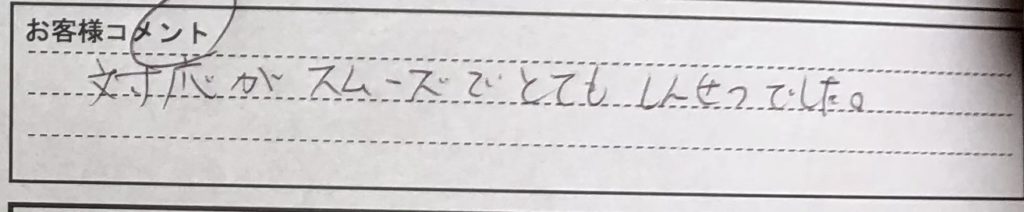 お客様コメント
対応がスムーズでとてもしんせつでした。